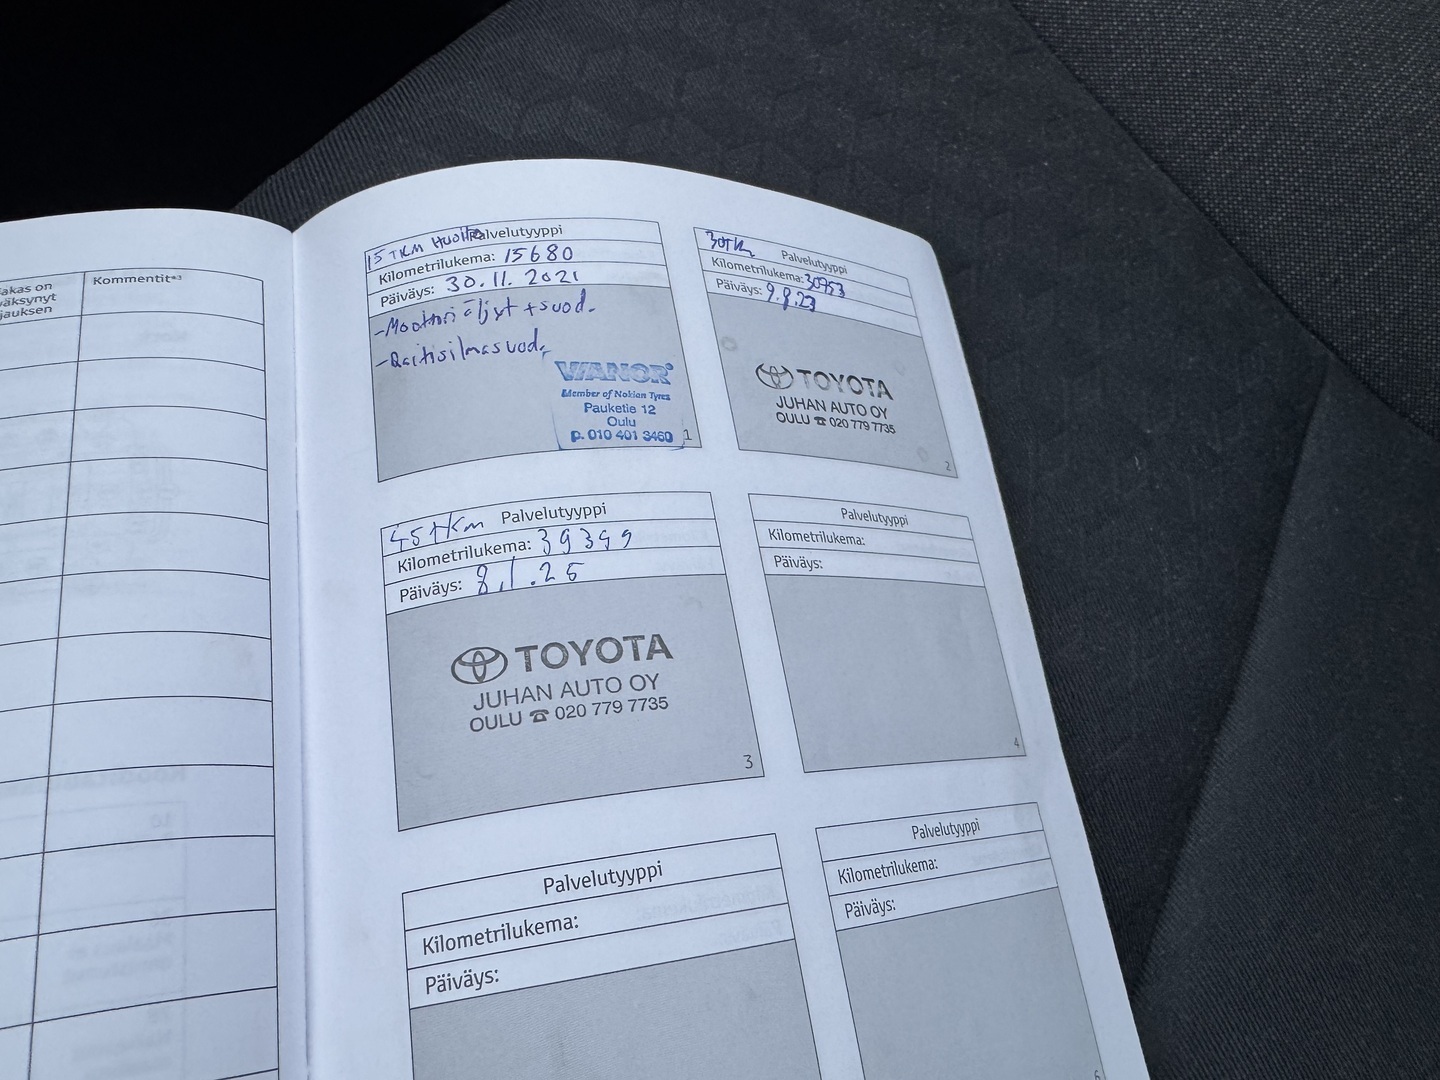 akas on
äksynyt
jauksen
Kommentit*²
15 TKM Huolto Palvelutyyppi
Kilometrilukema: 15680
Päiväys: 30.11. 2021
-Moottoriöljyt + suod.
-Raitisilmasuod.
VIANOR
Member of Nokian Tyres
Pauketie 12
Oulu
p. 010 401 3460
1
30TKm Palvelutyyppi
Kilometrilukema: 30753
Päiväys: 9.8.23
TOYOTA
JUHAN AUTO OY
OULU ☎ 020 779 7735
2
45TKm Palvelutyyppi
Kilometrilukema: 39399
Päiväys: 8.1.25
TOYOTA
JUHAN AUTO OY
OULU ☎ 020 779 7735
3
Palvelutyyppi
Kilometrilukema:
Päiväys:
4
Palvelutyyppi
Kilometrilukema:
Päiväys:
Palvelutyyppi
Kilometrilukema:
Päiväys:
6